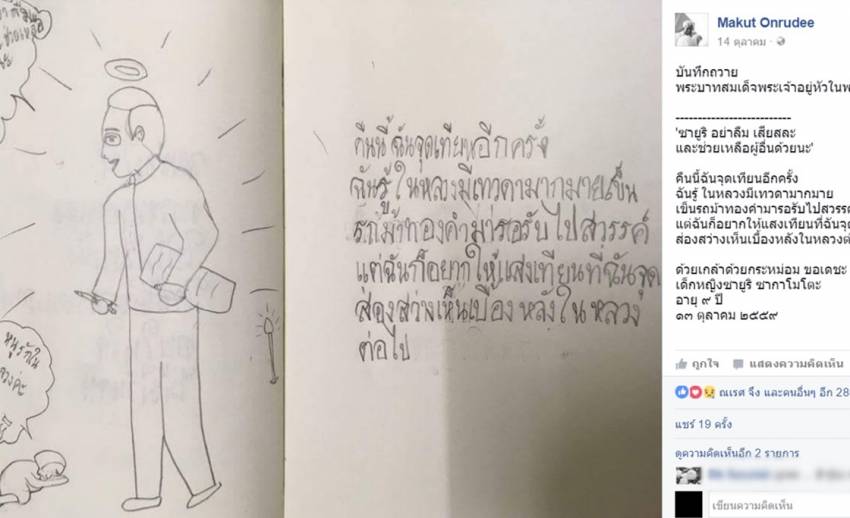 คืนนี้ ฉันจุดเทียนอีกครั้ง
ฉันรู้ ในหลวงมีเทวดามากมายเข็น
รถม้าทองคำมารอรับไปสวรรค์
แต่ฉันก็อยากให้แสงเทียนที่ฉันจุด
ส่องสว่างเห็นเบื้องหลังในหลวง
ต่อไป
หนูรักใน
Makut Onrudee
14 ตุลาคม
บันทึกถวาย
พระบาทสมเด็จพระเจ้าอยู่หัวในพ
--------------------------
'ซายูริ อย่าลืม เสียสละ
และช่วยเหลือผู้อื่นด้วยนะ'
คืนนี้ฉันจุดเทียนอีกครั้ง
ฉันรู้ ในหลวงมีเทวดามากมาย
เข็นรถม้าทองคำมารอรับไปสวรรค
แต่ฉันก็อยากให้แสงเทียนที่ฉันจุด
ส่องสว่างเห็นเบื้องหลังในหลวงต่
ด้วยเกล้าด้วยกระหม่อม ขอเดชะ
เด็กหญิงซายูริ ซากาโมโตะ
อายุ ๙ ปี
๑๓ ตุลาคม ๒๕๕๙
ถูกใจ แสดงความคิดเห็น
ณเรศ จึง และคนอื่นๆ อีก 28
แชร์ 19 ครั้ง
ดูความคิดเห็นอีก 2 รายการ
เขียนความคิดเห็น